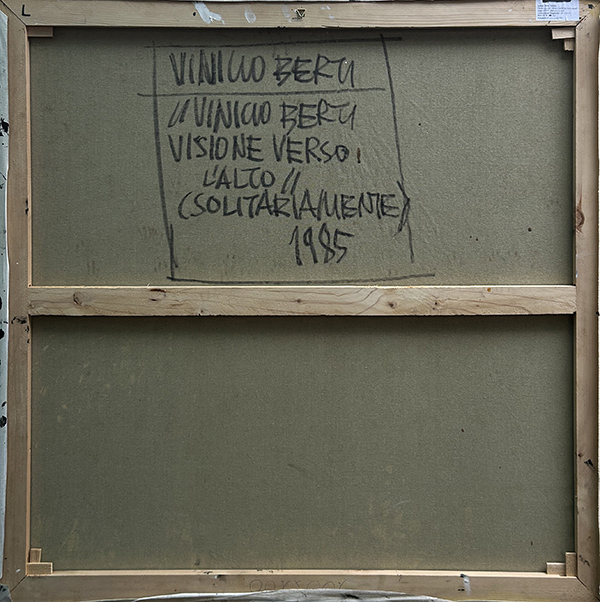 L
VINICIO BERTI
"VINICIO BERTI
VISIONE VERSO
L'ALTO"
(SOLITARIAMENTE)
1985